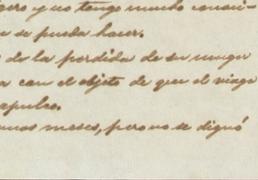 pero yo no tengo mucho conoci-
se pueda hacer.
de la perdida de su muger
a con el objeto de que el viage
apulco.
unos meses, pero no se dignó